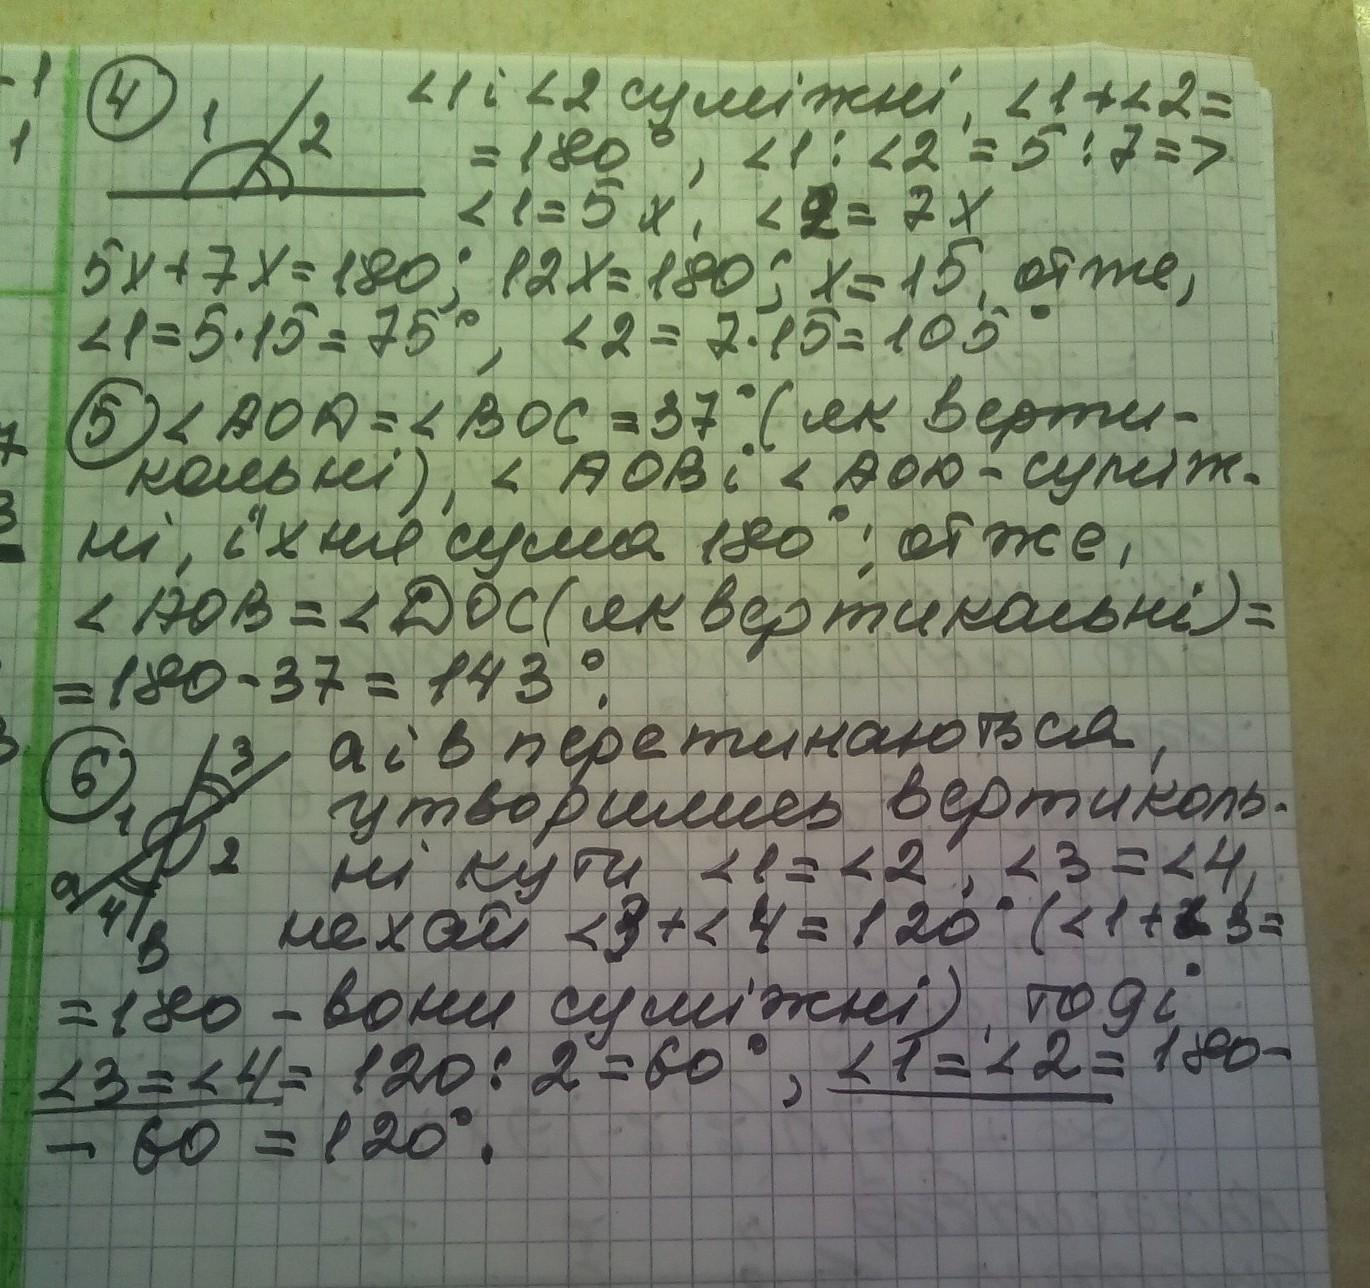 4 1 2 <1 і <2 суміжні, <1+<2=
=180°, <1:<2=5:7=>
<1=5x, <2=7x
5x+7x=180; 12x=180; x=15, отже,
<1=5·15=75°, <2=7·15=105°
5 <AOD=<BOC=37° (як верти-
кальні), <AOB і <AOD-суміж-
ні, їхня сума 180°; отже,
<AOB=<DOC(як вертикальні)=
=180-37=143°.
6 1 3 2 4 a в a і в перетинаються,
утворились вертикаль-
ні кути <1=<2, <3=<4,
нехай <3+<4=120° (<1+<3=
=180-вони суміжні), тоді
<3=<4=120:2=60°, <1=<2=180-
-60=120°.